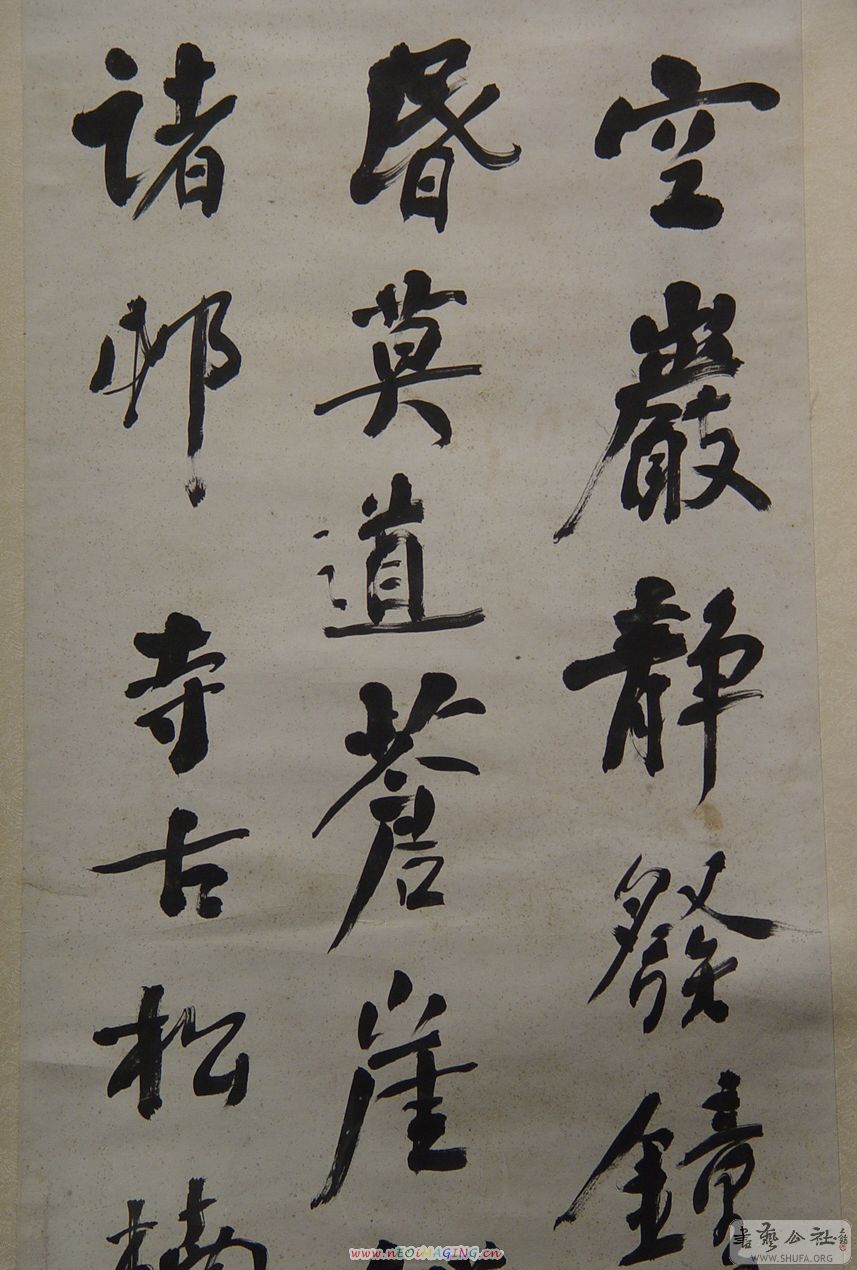 空巖静發鐘
昏莫道蒼崖
諸邨寺古松楠
www.nEOiMAGiNG.cn
書藝公社
WWW.SHUFA.ORG